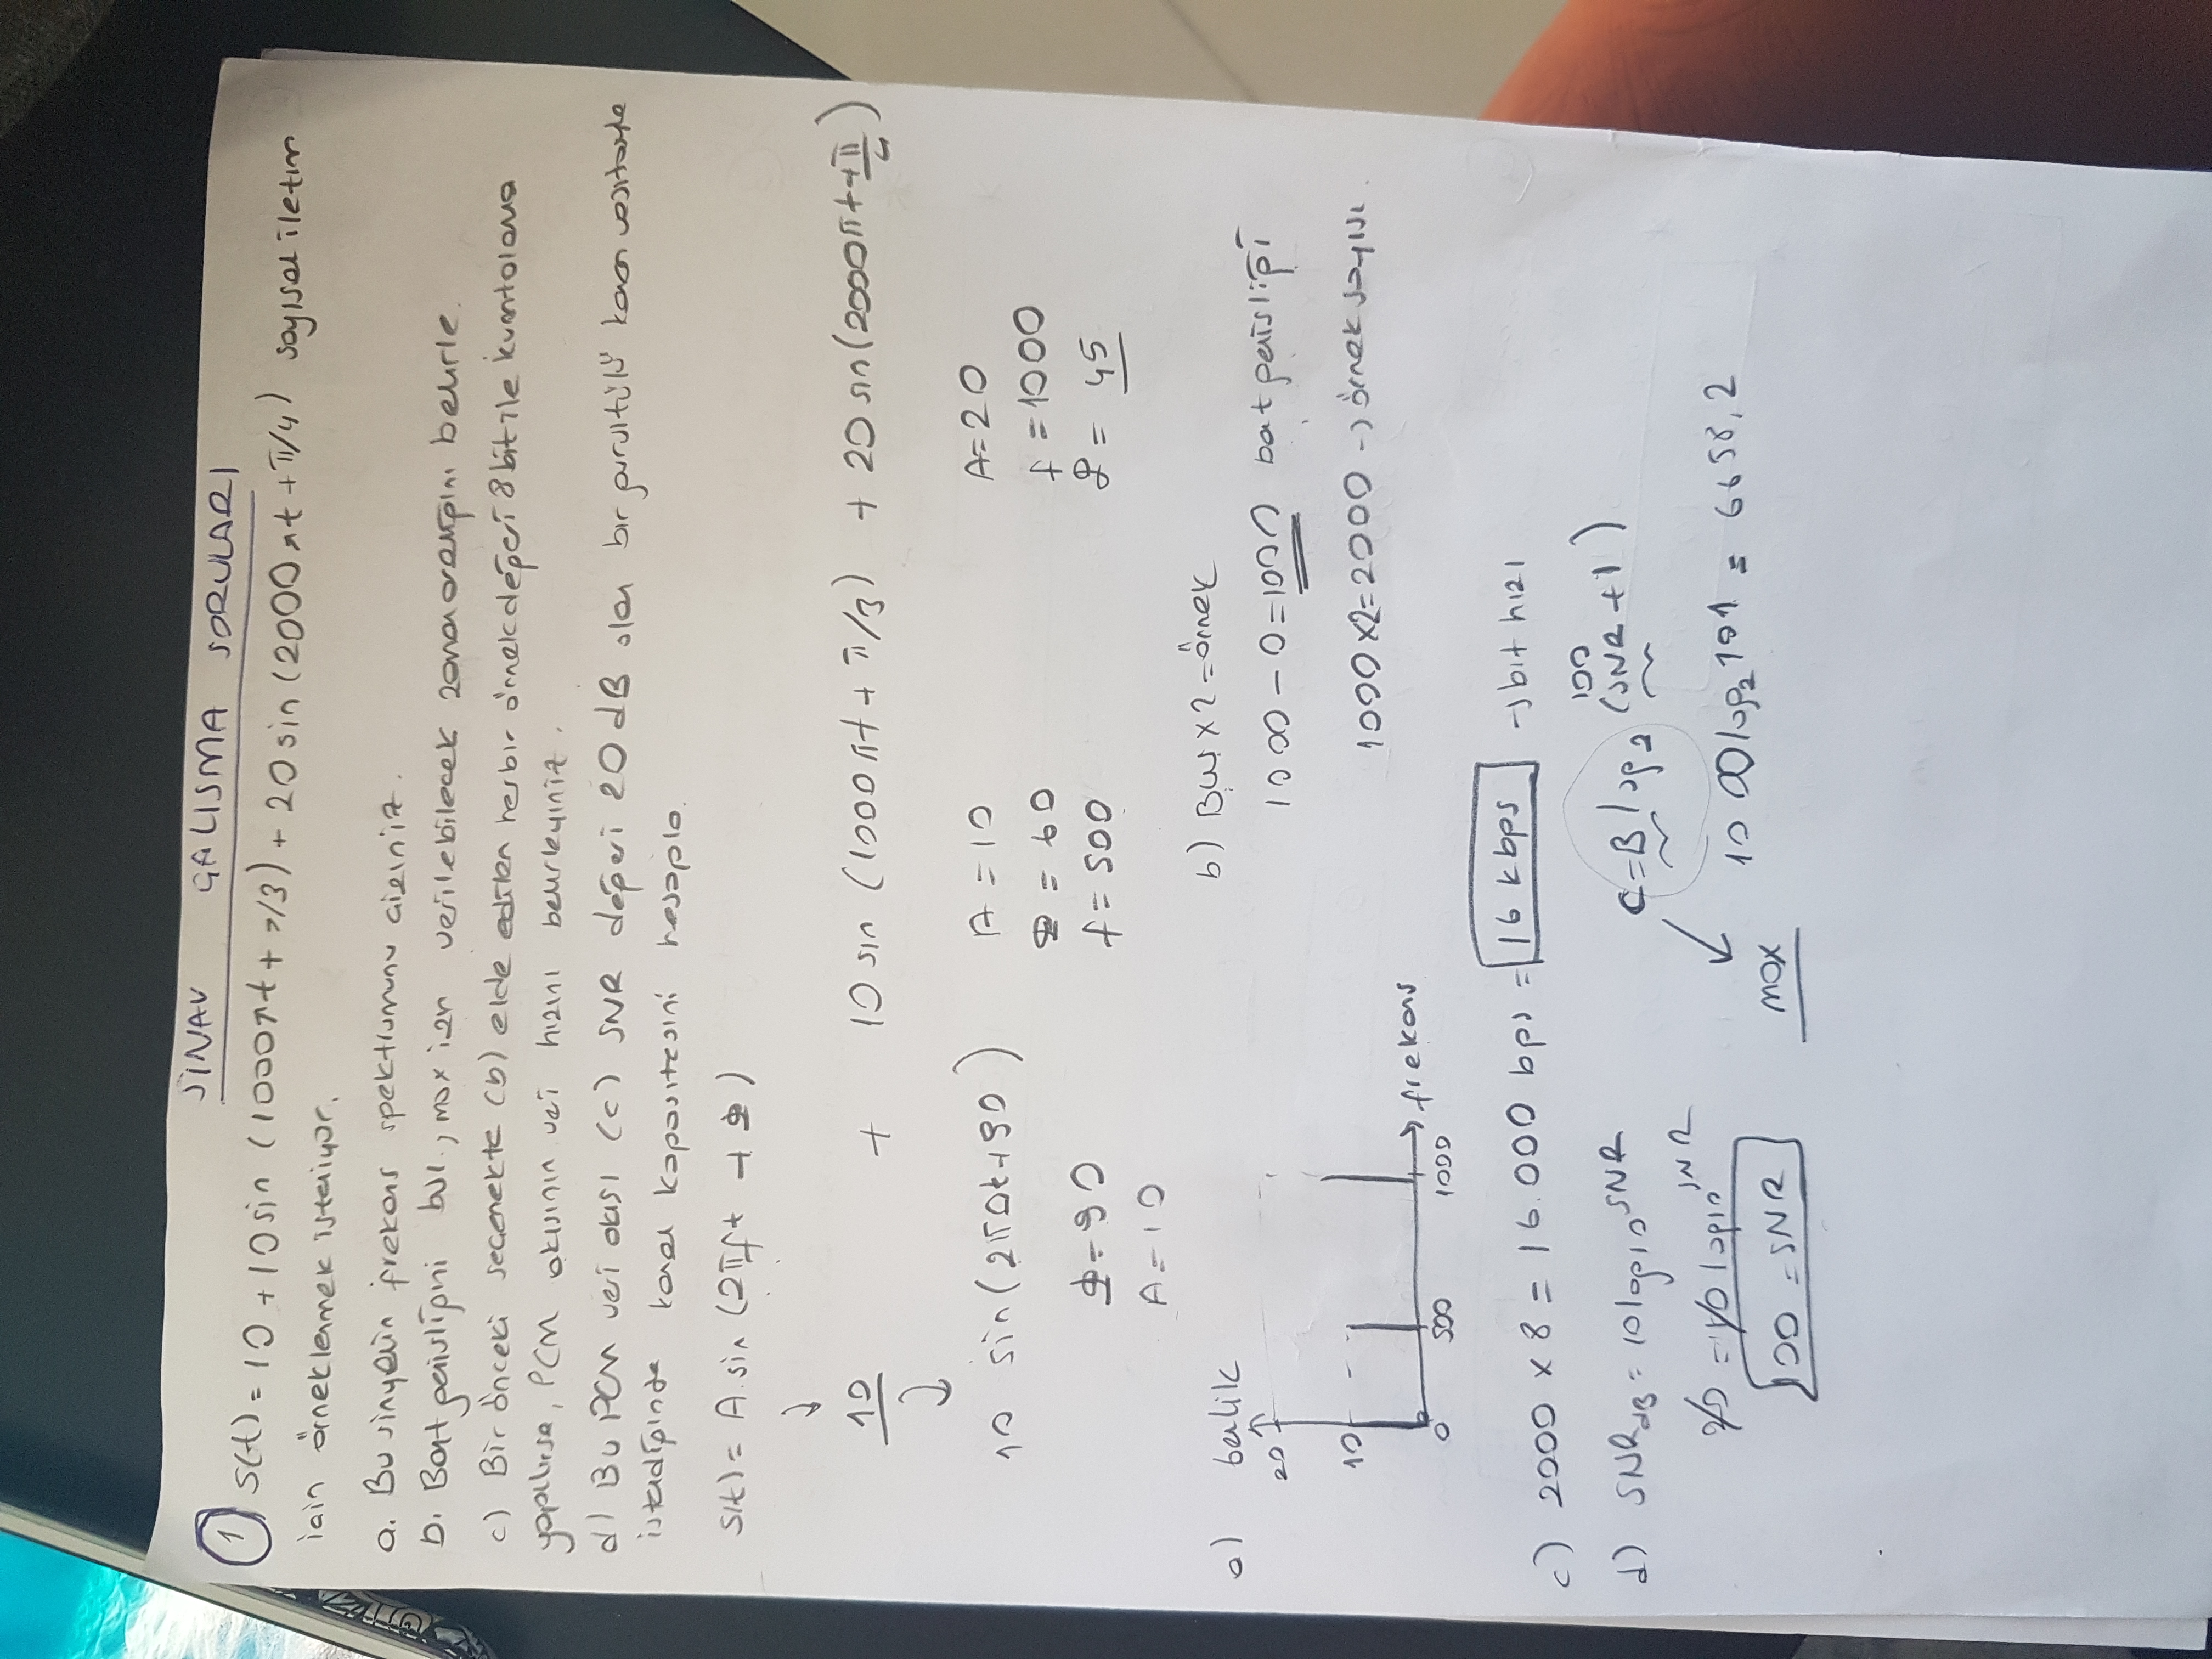 SİNAV ÇALISMA SORULARI
1 S(t) = 10 + 10 sin (1000πt + π/3) + 20 sin (2000πt + π/4) sayısal iletim
için örneklenmek isteniyor.
a. Bu sinyalin frekans spektrumunu çiziniz.
b. Bant genişliğini bul., max izn verilebilecek zaman aralığını belirle.
c) Bir önceki seçenekte (b) elde edilen herbir örnek değeri 8 bit ile kvantalama
yapılırsa, PCM akısının veri hızını belirleyiniz.
d) Bu PCM veri akısı (c) SNR değeri 20 dB olan bir gürültülü kanal vasıtasıyla
istendiğinde kanal kapasitesini hesapla.
S(t) = A.sin (2πft + Φ)
↓
10 + 10 sin (1000πt + π/3) + 20 sin (2000πt + π/4)
↓
10 sin (2π0t+90) A = 10 A=20
Φ = 60 f = 1000
Φ=90 f = 500 Φ = 45
A=10
a) genlik b) BW x 2 = örnek
20 1000 - 0 = 1000 bant genişliği
10 1000 x2=2000 → örnek sayısı.
frekans
0 500 1000
c) 2000 x 8 = 16.000 bps = 16 kbps → bit hızı
100
d) SNRdB = 10log10 SNR C = B log2 (SNR + 1)
20 = 10 log10 SNR 1000 log2 101 = 6658,2
100 = SNR max